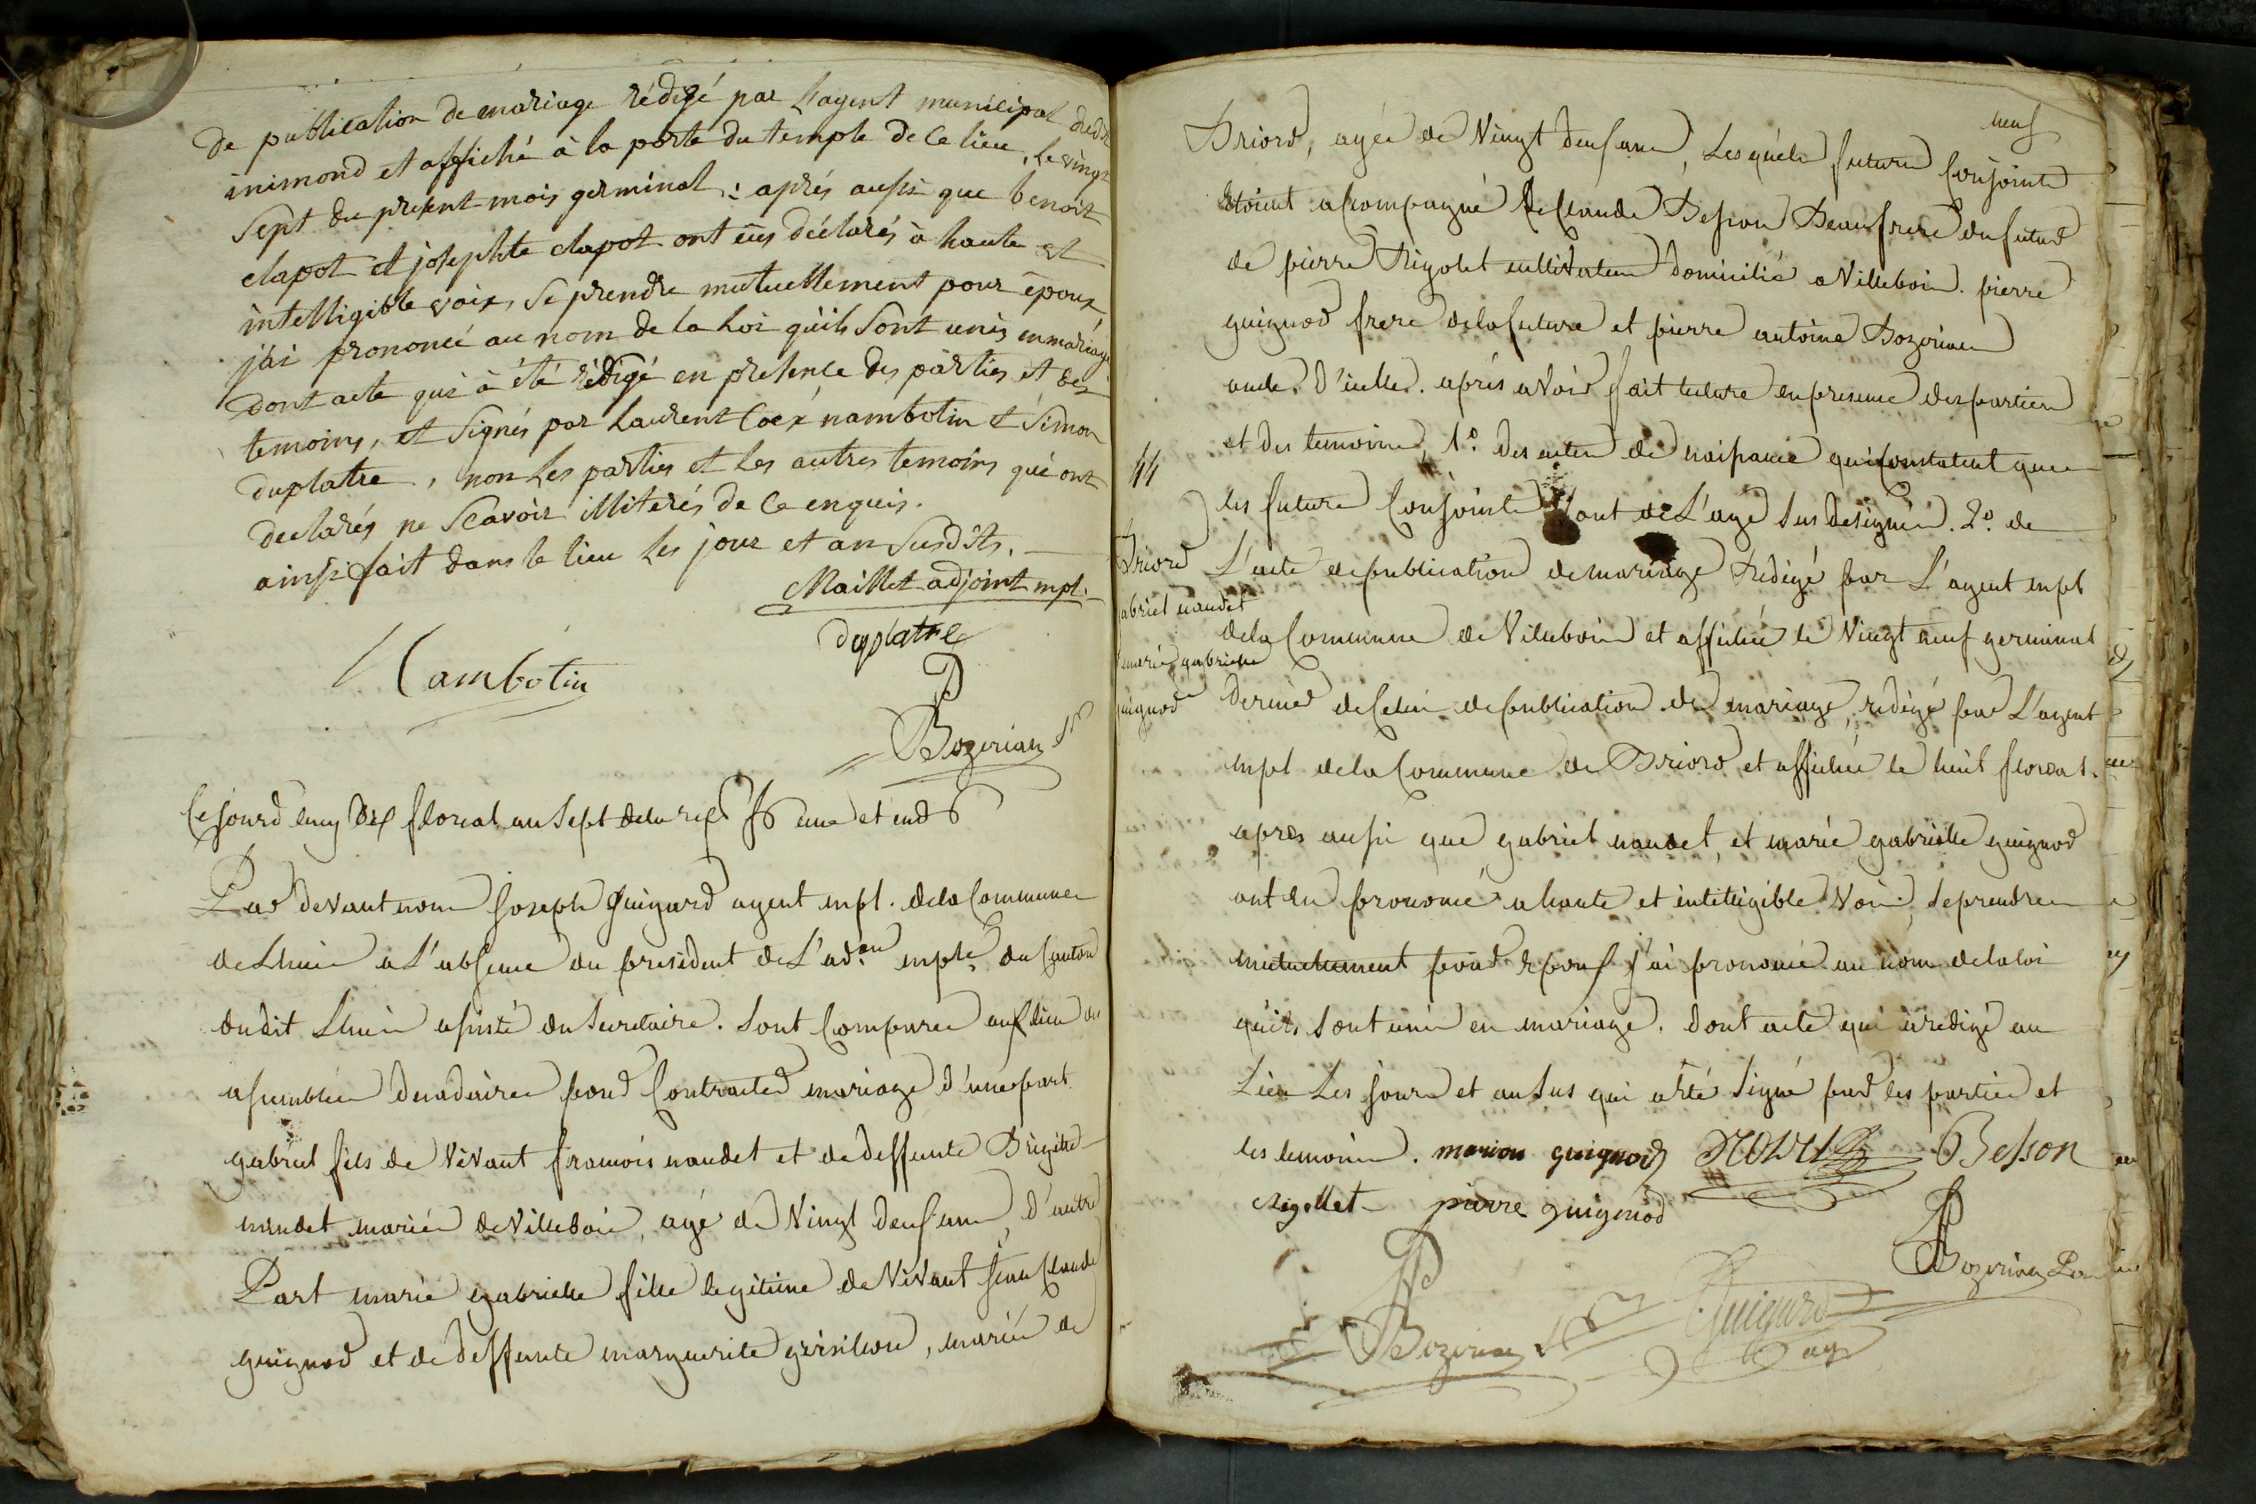 de publication de mariage rédigé par L'agent municipal dudt
inimond et affiché à la porte du temple de ce lieu, le vingt
sept du present mois germinal; aprés aussi que benoit
clapot et josephte clapot ont eûs déclarés à haute et
intelligible voix, se prendre mutuellement pour époux
j'ai prononcé au nom de la Loi quils sont unis en mariage
Dont acte qui à été rédigé en presence des parties et des
temoins, et signés par Laurent Coex nambotin et Simon
duplatre, non Les parties et Les autres temoins qui ont
declarés ne Scavoir illiterés de ce enquis.
ainsi fait dans le lieu Les jour et an Susdits.
Maillet adjoint mpl.
duplatre
Nambotin
Bozerian
Ce jourd'huy dix floreal an Sept de la rep. f une et ind
Par devant nous Joseph Guigard agent mpl. de la Commune
de Lhuis a L'absence du president de L'ad.on mple. du Canton
dudit Lhuis assisté du Secretaire. Sont Comparus au lieu des
assemblées decadaires pour Contracter mariage d'une part
gabriel fils de vivant francois naudet et de deffunte Brigitte
naudet mariés de Villebois, agé de Vingt deux ans, d'autre
Part marie gabrielle fille legitime de Vivant Jean Claude
guignod et de deffunte marguerite , mariés de
neuf
Briord, agée de Vingt deux ans, Lesquels futurs Conjoints
Etoient acompagné de Claude Besson Beaufrere du futur
de pierre Rigolet cultivateur domicilié a Villebois. pierre
guignod frere de la future et pierre antoine Bozerian
oncle d'icelle. aprés avoir fait lecture en presence des parties
et des temoins, 1.º des actes de naissance qui constatent que
les futurs Conjoints sont de L'age sus designés. 2.º de
L'acte de publication de mariage redigé par L'agent mpl
de la Commune de Villebois et affiché le Vingt neuf germinal
dernier de Celui de publication de mariage, redigé par L'agent
mpl de la Commune de Briord et affiché le huit floreal.
aprés aussi que gabriel naudet, et marie gabrielle guignod
ont eu prononcé a haute et intelligible Voix se prendre
mutuelement pour Epoux j'ai prononcé au nom de la loi
quils sont unis en mariage. dont acte qui a redigé au
Lieu Les jours et an sus qui a eté signé par les parties et
les temoins. marion guignod Besson
Rigollet pierre guignod
Bozerian
Bozerian Guigard
ag
44
Briord
gabriel naudet
marie gabrielle
guignod